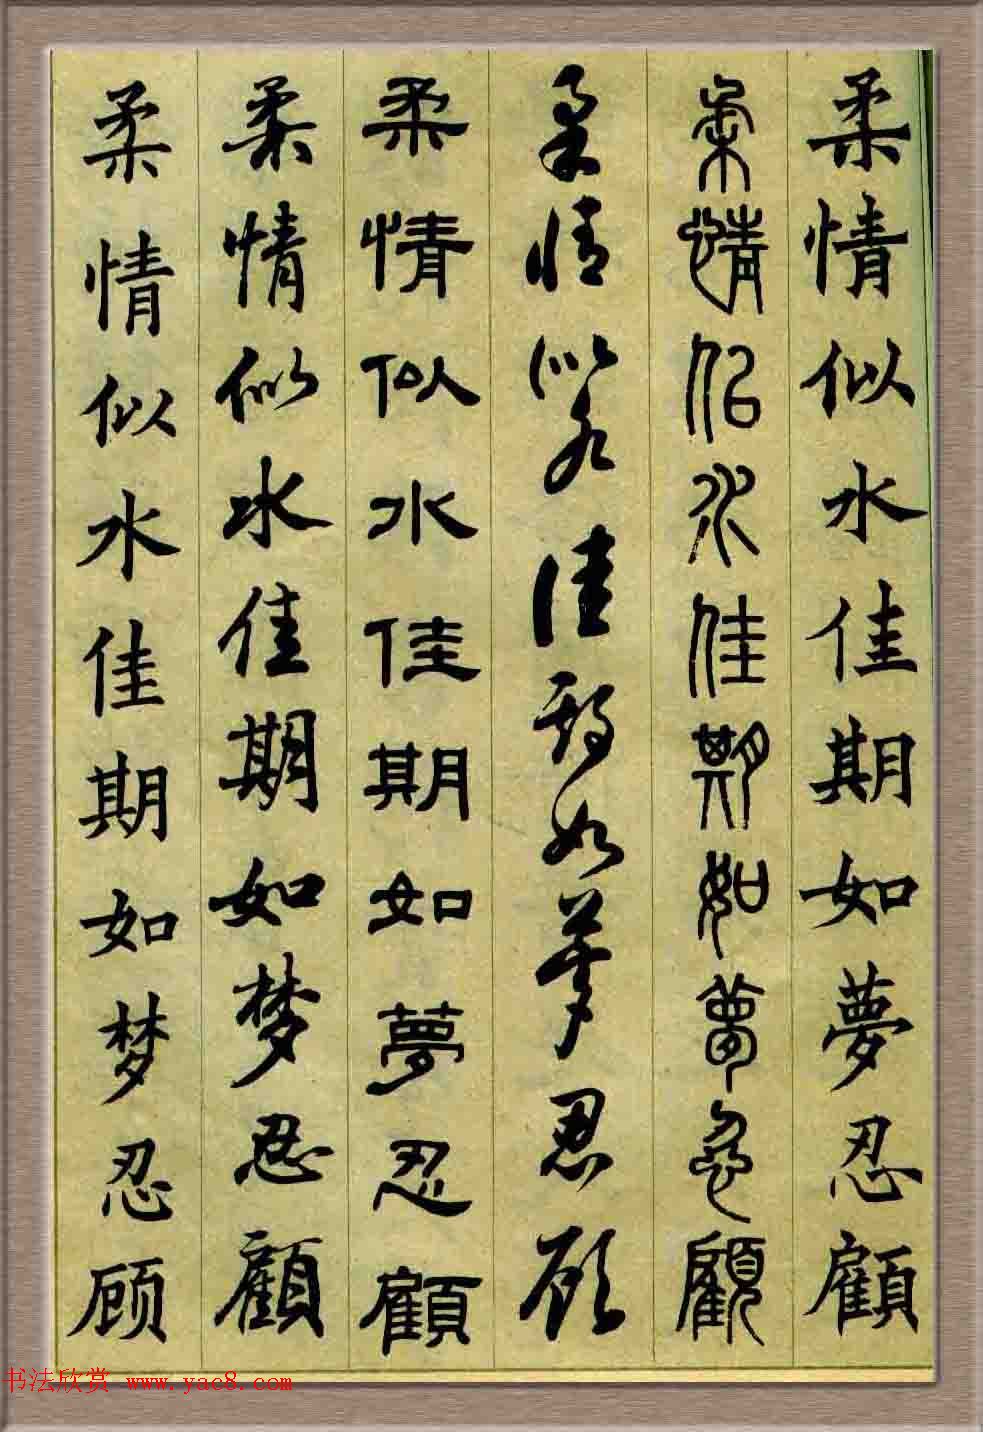 柔情似水佳期如夢忍顧
柔情似水佳期如夢忍顧
柔情似水佳期如夢忍顧
柔情似水佳期如夢忍顧
柔情似水佳期如梦忍顧
柔情似水佳期如梦忍顾
书法欣赏 www.yac8.com